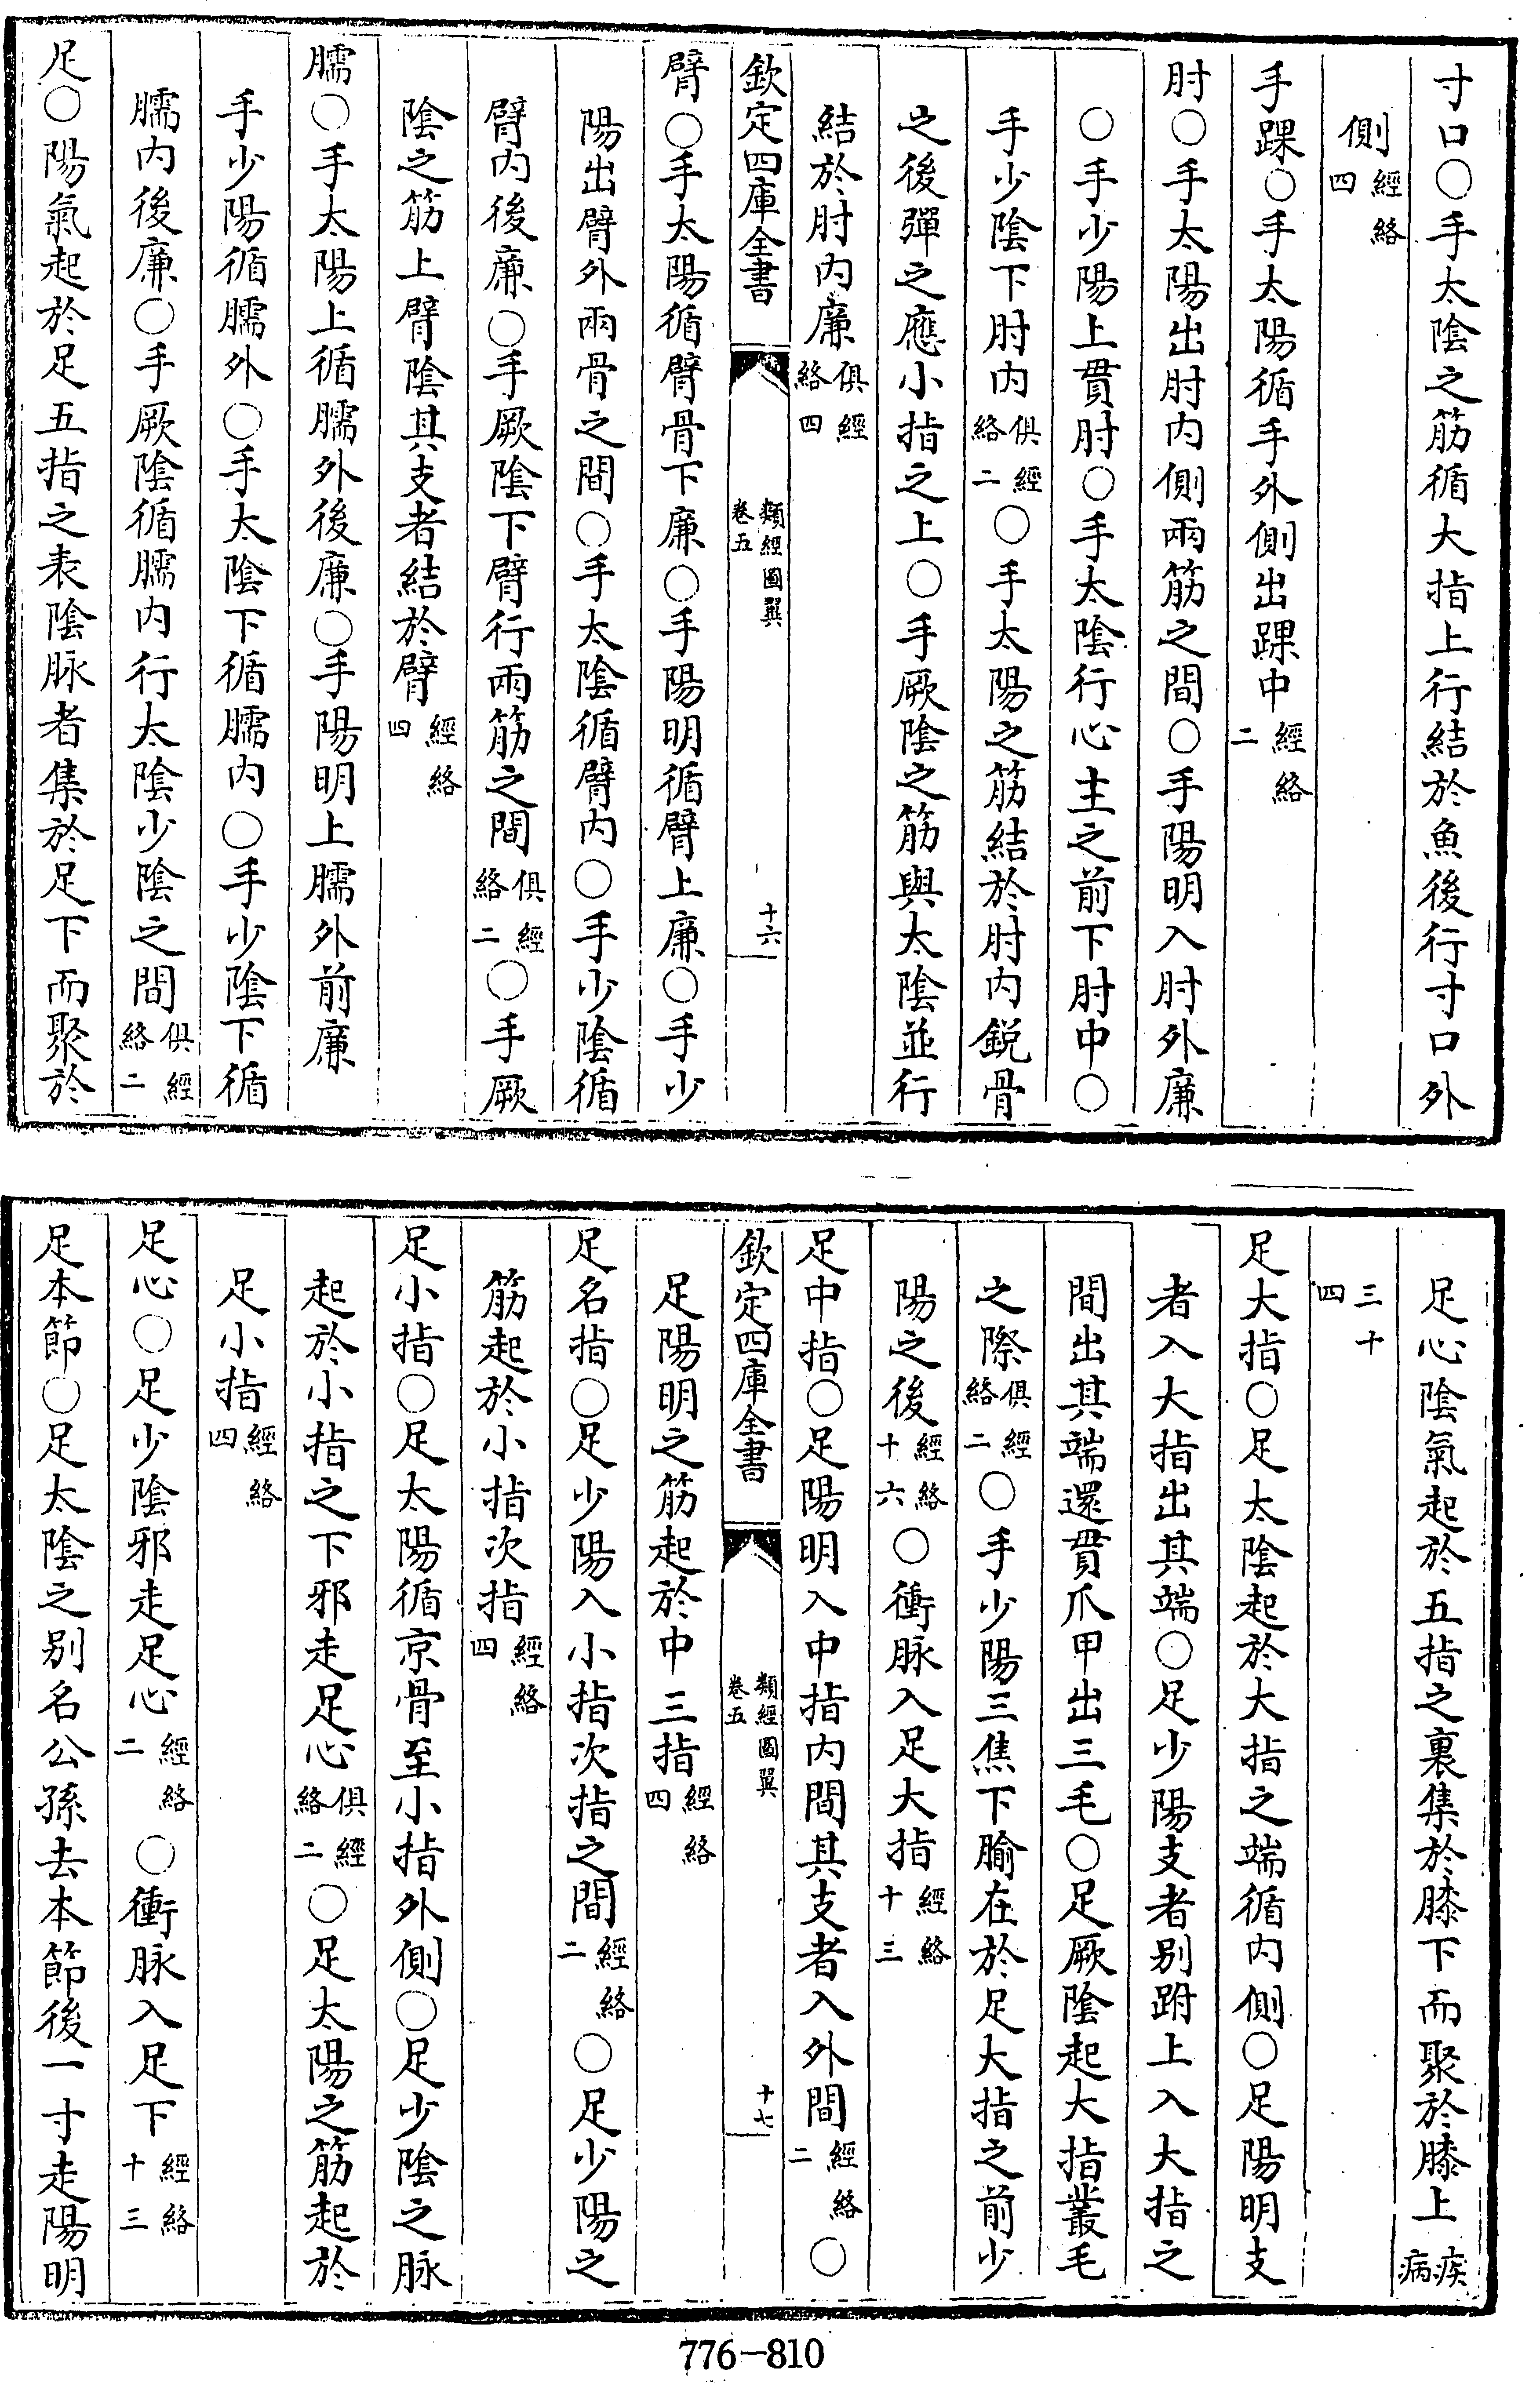 寸口○手太陰之筋循大指上行結於魚後行寸口外
側經絡四
手踝○手太陽循手外側出踝中經絡二
肘○手太陽出肘内側兩筋之間○手陽明入肘外廉
○手少陽上貫肘○手太陰行心主之前下肘中○
手少陰下肘内俱經絡二○手太陽之筋結於肘内鋭骨
之後彈之應小指之上○手厥陰之筋與太陰並行
結於肘内廉俱經絡四
欽定四庫全書 類經圖翼卷五 十六
臂○手太陽循臂骨下廉○手陽明循臂上廉○手少
陽出臂外兩骨之間○手太陰循臂内○手少陰循
臂内後廉○手厥陰下臂行兩筋之間俱經絡二○手厥
陰之筋上臂陰其支者結於臂經絡四
臑○手太陽上循臑外後廉○手陽明上臑外前廉
手少陽循臑外○手太陰下循臑内○手少陰下循
臑内後廉○手厥陰循臑内行太陰少陰之間俱經絡二
足○陽氣起於足五指之表陰脉者集於足下而聚於
足心陰氣起於五指之裏集於膝下而聚於膝上疾病
三十四
足大指○足太陰起於大指之端循内側○足陽明支
者入大指出其端○足少陽支者别跗上入大指之
間出其端還貫爪甲出三毛○足厥陰起大指叢毛
之際俱經絡二○手少陽三焦下腧在於足大指之前少
陽之後經絡十六○衝脉入足大指經絡十三
足中指○足陽明入中指内間其支者入外間經絡二○
欽定四庫全書 類經圖翼卷五 十七
足陽明之筋起於中三指經絡四
足名指○足少陽入小指次指之間經絡二○足少陽之
筋起於小指次指經絡四
足小指○足太陽循京骨至小指外側○足少陰之脉
起於小指之下邪走足心俱經絡二○足太陽之筋起於
足小指經絡四
足心○足少陰邪走足心經絡二○衝脉入足下經絡十三
足本節○足太陰之别名公孫去本節後一寸走陽明
776-810